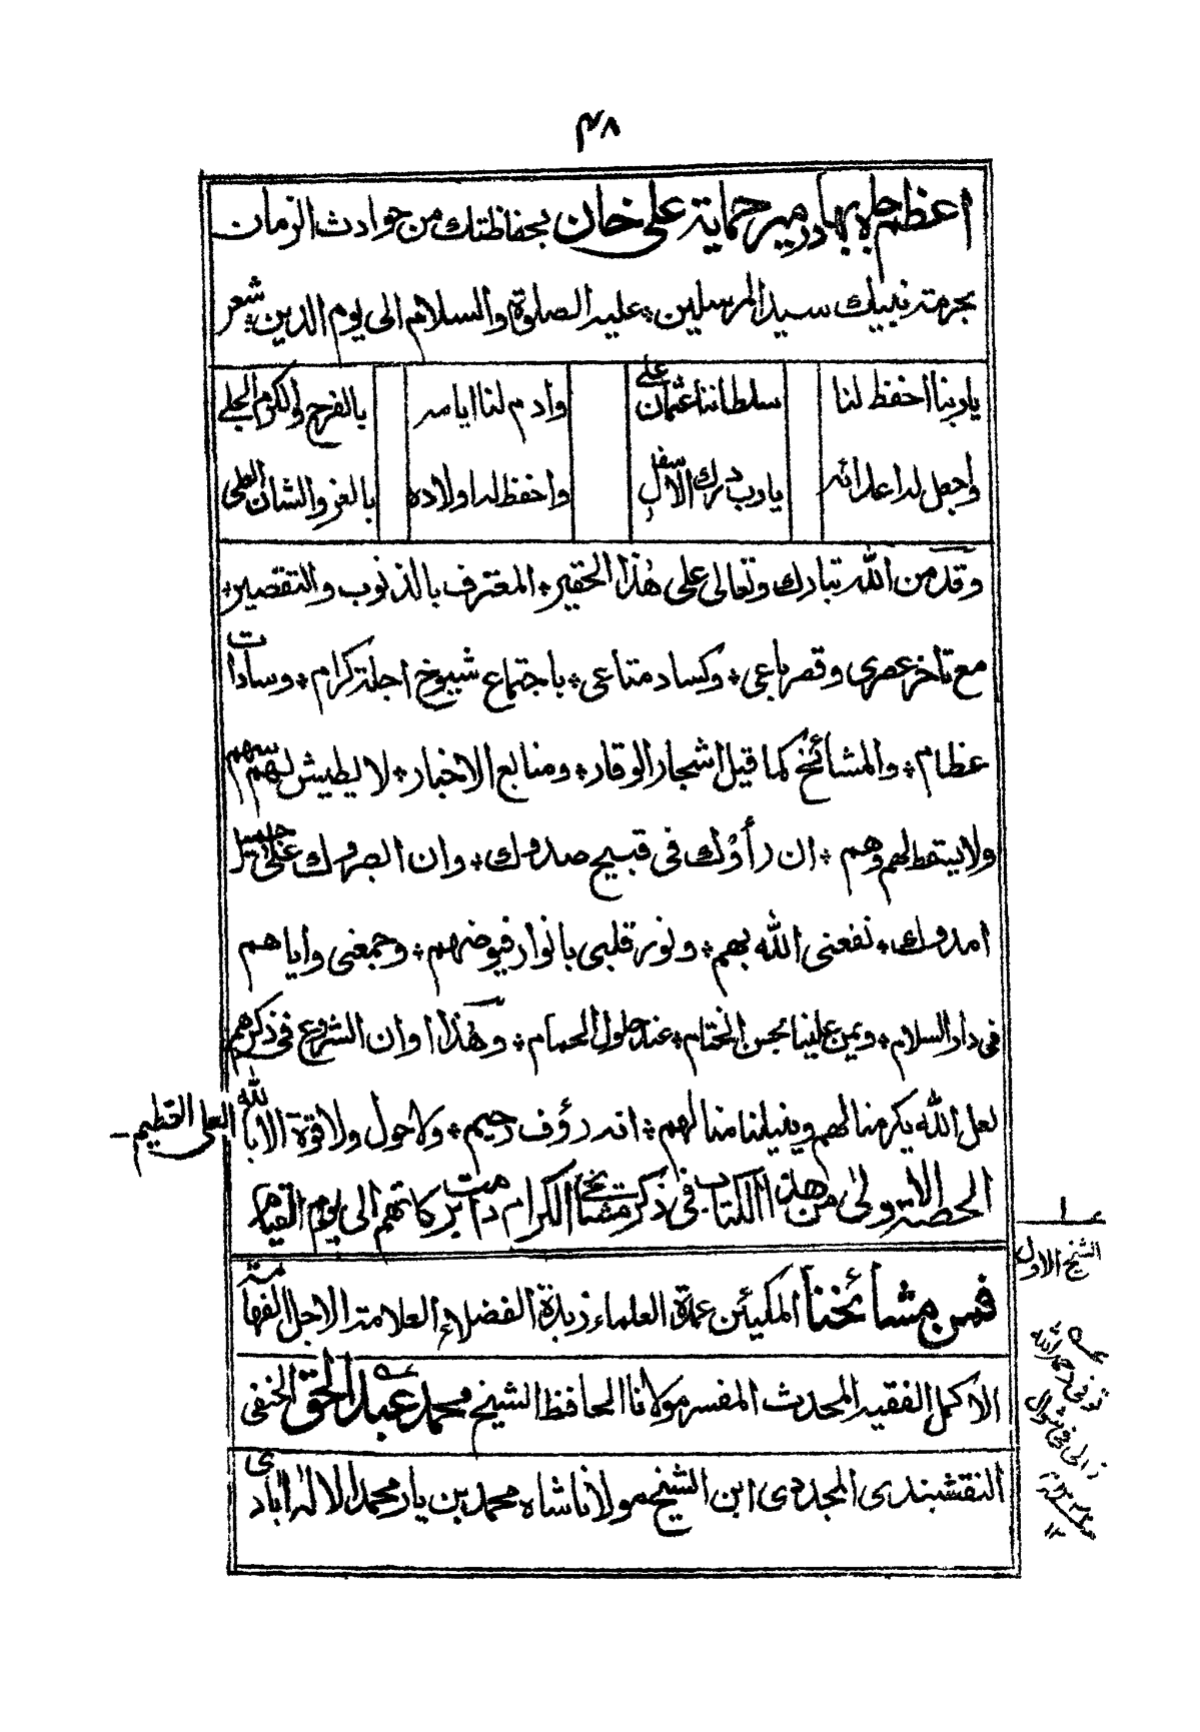 ٤٨
اعظم جاه بهادر مير حماية علي خان بحفاظتك من حوادث الزمان
بحرمة نبيك سيد المرسلين * عليه الصلوة والسلام الى يوم الدين * شعر
ياربنا احفظ لنا سلطاننا عثمان علي وادم لنا ايامه بالفرح والكرم الجلي
واجعل لد اعدائه يارب درك الاسفل واحفظ له اولاده بالعز والشان العلي
وقد من الله تبارك وتعالى على هذا الحقير * المعترف بالذنوب والتقصير *
مع تأخر عصري وقصر باعي * وكساد متاعي * باجتماع شيوخ اجلة كرام * وسادات
عظام * والمشائخ كما قيل اشجار الوقار * ومنابع الاخبار * لا يطيش لهم سهم
ولا يسقط لهم وهم * ان رأوك في قبيح صدوك * وان ابصروك على جميل
امدوك * نفعني الله بهم * ونور قلبي بانوار فيوضهم * وجمعني واياهم
في دار السلام * ويمن علينا بحسن الختام * عند حلول الحمام * وهذا اوان الشروع في ذكرهم
لعل الله يكرمنا لهم وينيلنا منالهم * انه رؤف رحيم * ولا حول ولا قوة الا بالله العلي العظيم -
الحصة الاولى من هذا الكتاب في ذكر مشائخ الكرام دامت بركاتهم الى يوم القيام
الشيخ الاول
فمن مشائخنا المكيئن عمدة العلماء زبدة الفضلاء العلامة الاجل الفهامة
الاكمل الفقيه المحدث المفسر مولانا الحافظ الشيخ محمد عبد الحق الحنفي
النقشبندي المجددي ابن الشيخ مولانا شاه محمد بن يار محمد الاله آبادي
توفي رحمه الله
في شوال